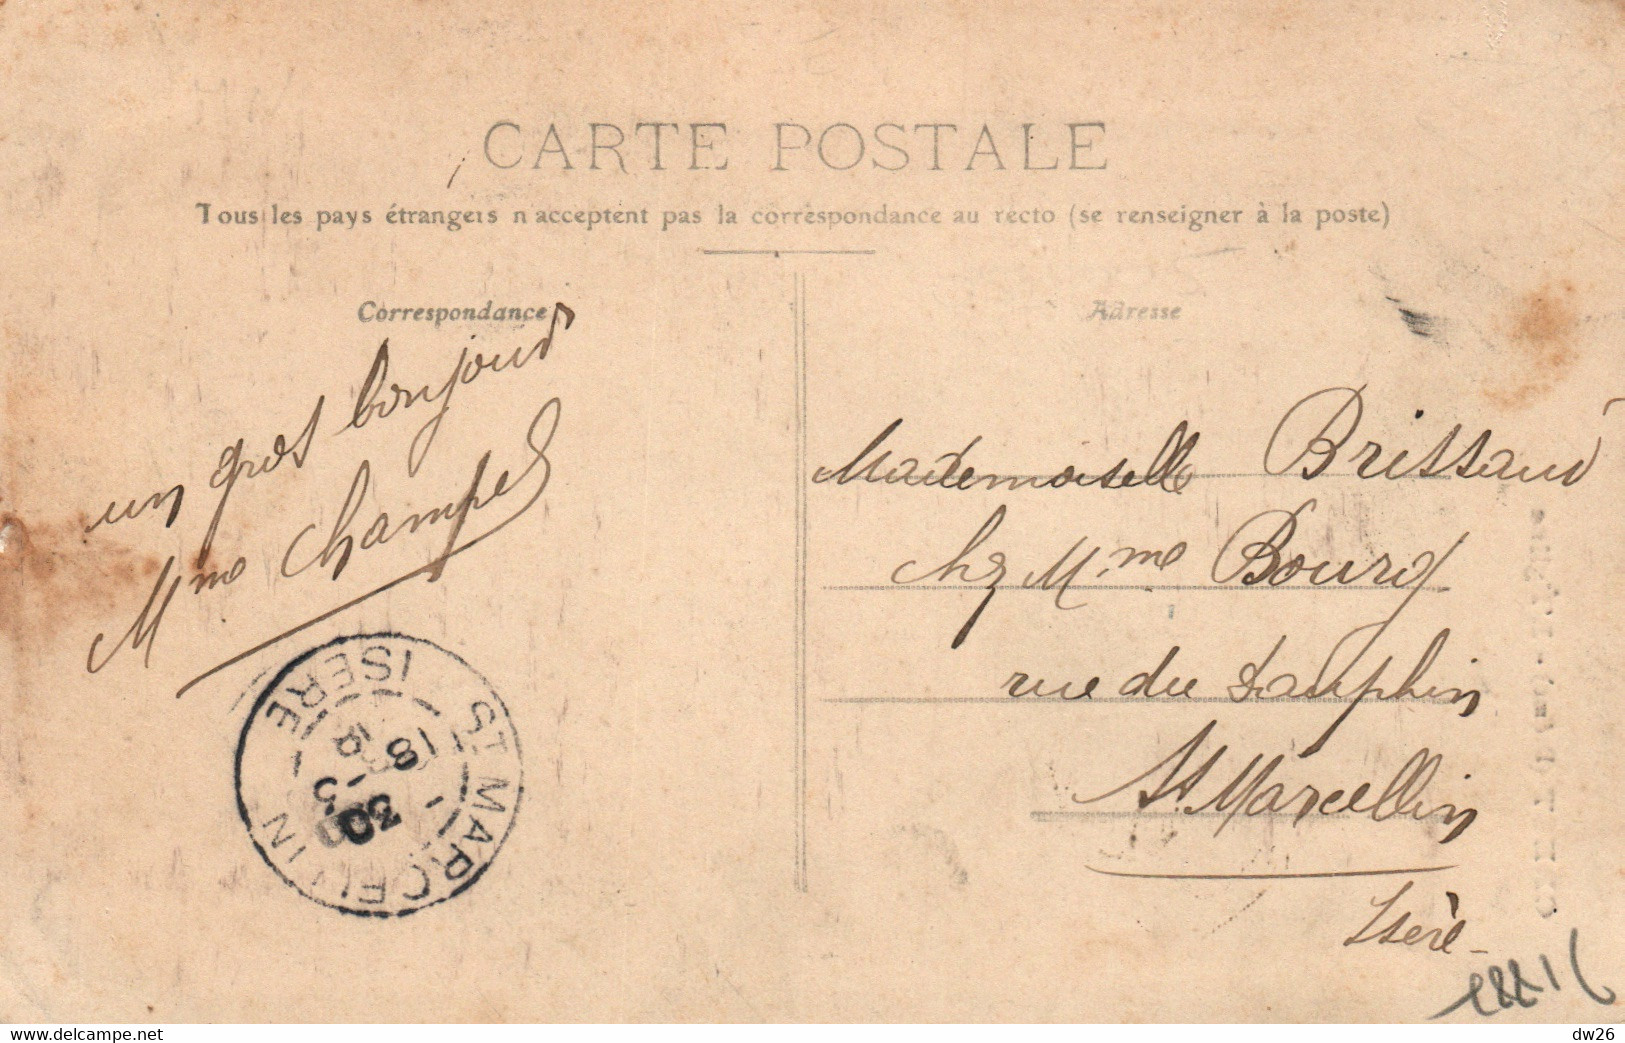 CARTE POSTALE
Tous les pays étrangers n'acceptent pas la correspondance au recto (se renseigner à la poste)
Correspondance
Adresse
un gros bonjour
Mme Champel
Mademoiselle Brissaud
chz Mme Bourg
rue du Dauphin
St Marcellin
Isère
ST MARCELLIN
ISERE
18 - 3
www.delcampe.net
dw26